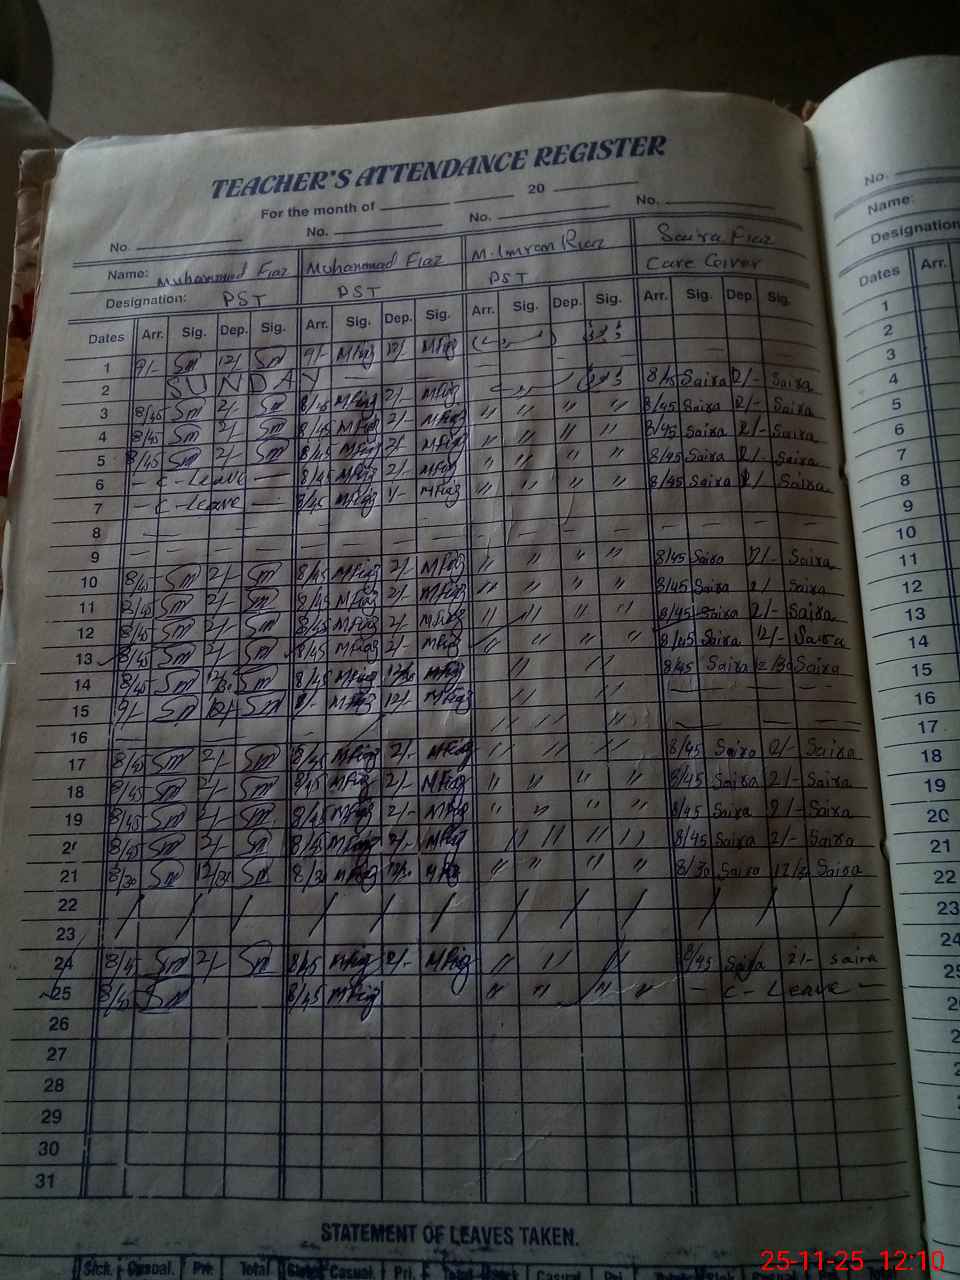 TEACHER'S ATTENDANCE REGISTER
For the month of 20
No. No. No. No.
Name: Muhammad Fiaz Muhammad Fiaz M. Imran Riaz Saira Fiaz
Designation: PST PST PST Care Giver
Dates Arr. Sig. Dep. Sig. Arr. Sig. Dep. Sig. Arr. Sig. Dep. Sig. Arr. Sig. Dep. Sig.
1 9/- Sm 12/- Sm 9/- MFiaz 12/- MFiaz
2 SUNDAY
3 8/45 Sm 2/- Sm 8/45 MFiaz 2/- MFiaz 8/45 Saira 2/- Saira
4 8/45 Sm 2/- Sm 8/45 MFiaz 2/- MFiaz " " " " 8/45 Saira 2/- Saira
5 8/45 Sm 2/- Sm 8/45 MFiaz 2/- MFiaz " " " " 8/45 Saira 2/- Saira
6 - C - Leave - 8/45 MFiaz 2/- MFiaz " " " " 8/45 Saira 2/- Saira
7 - C - Leave - 8/45 MFiaz MFiaz " " " " 8/45 Saira Saira
8
9
10 8/45 Sm 2/- Sm 8/45 MFiaz 2/- MFiaz " " " " 8/45 Saira 2/- Saira
11 8/45 Sm 2/- Sm 8/45 MFiaz 2/- MFiaz " " " " 8/45 Saira 2/- Saira
12 8/45 Sm 2/- Sm 8/45 MFiaz 2/- MFiaz " " " " 8/45 Saira 2/- Saira
13 8/45 Sm 2/- Sm 8/45 MFiaz 2/- MFiaz " " " " 8/45 Saira 2/- Saira
14 8/45 Sm 12/30 Sm 8/45 MFiaz 12/30 MFiaz " " 8/45 Saira 12/30 Saira
15 9/- Sm 12/- Sm MFiaz 12/- MFiaz " "
16 " " " "
17 8/45 Sm 2/- Sm 8/45 MFiaz 2/- MFiaz " " " " 8/45 Saira 2/- Saira
18 8/45 Sm 2/- Sm 8/45 MFiaz 2/- MFiaz " " " " 8/45 Saira 2/- Saira
19 8/45 Sm 2/- Sm 8/45 MFiaz 2/- MFiaz " " " " 8/45 Saira 2/- Saira
8/45 Sm 2/- Sm 8/45 MFiaz 2/- MFiaz " " " " 8/45 Saira 2/- Saira
21 8/30 Sm 12/30 Sm 8/30 MFiaz 12/30 MFiaz " " " " 8/30 Saira 12/30 Saira
22
23
24 8/45 Sm 2/- Sm 8/45 MFiaz 2/- MFiaz " " " " 8/45 Saira 2/- Saira
25 8/45 Sm 8/45 MFiaz " " " " - C - Leave -
26
27
28
29
30
31
STATEMENT OF LEAVES TAKEN.
Sick. Casual. Pri. Total Casual. Pri. Total Casual. Pri.
No.
Name:
Designation
Dates Arr.
1
2
3
4
5
6
7
8
9
10
11
12
13
14
15
16
17
18
19
20
21
22
23
24
25
25-11-25 12:10